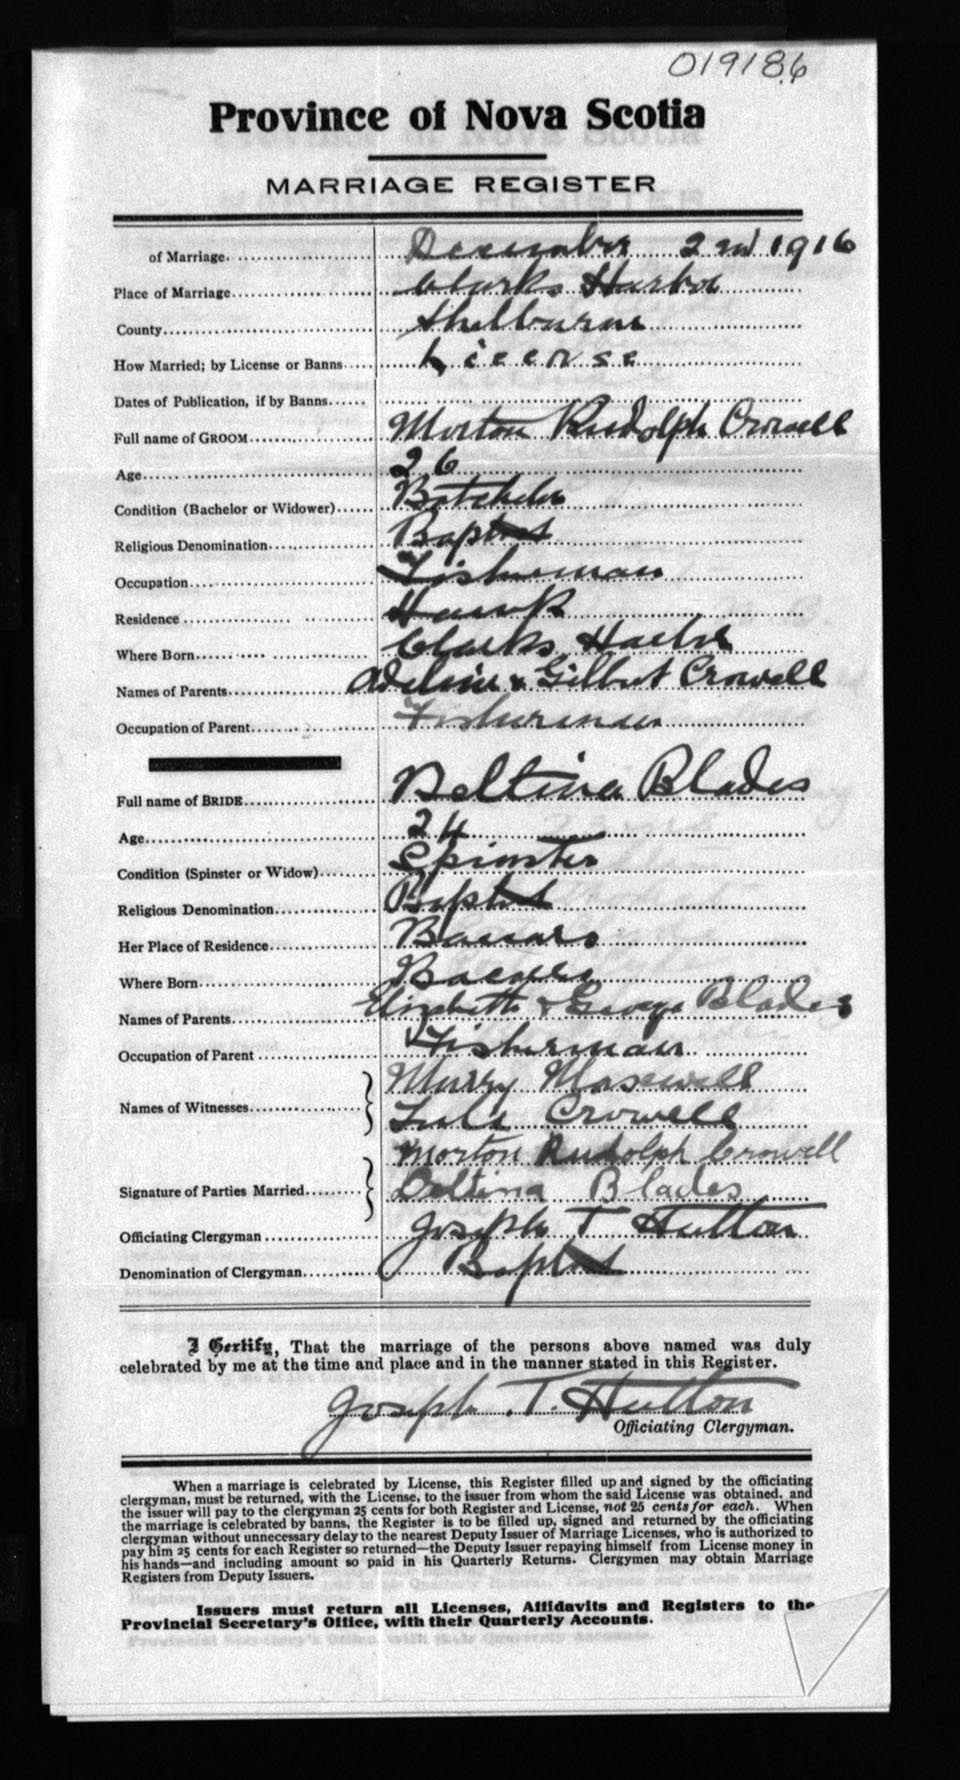 019186
Province of Nova Scotia
MARRIAGE REGISTER
of Marriage December 2nd 1916
Place of Marriage Clarks Harbor
County Shelburne
How Married; by License or Banns License
Dates of Publication, if by Banns
Full name of GROOM Morton Rudolph Crowell
Age 26
Condition (Bachelor or Widower) Batcheler
Religious Denomination Baptist
Occupation Fisherman
Residence Hawk
Where Born Clarks Harbor
Names of Parents Adeline & Gilbert Crowell
Occupation of Parent Fisherman
Full name of BRIDE Deltina Blades
Age 24
Condition (Spinster or Widow) Spinster
Religious Denomination Baptist
Her Place of Residence
Where Born
Names of Parents Elizabeth & George Blades
Occupation of Parent Fisherman
Names of Witnesses Murry Maxwell
Lula Crowell
Morton Rudolph Crowell
Signature of Parties Married Deltina Blades
Officiating Clergyman Joseph T Hutton
Denomination of Clergyman Baptist
I Certify, That the marriage of the persons above named was duly
celebrated by me at the time and place and in the manner stated in this Register.
Joseph T. Hutton
Officiating Clergyman.
When a marriage is celebrated by License, this Register filled up and signed by the officiating
clergyman, must be returned, with the License, to the issuer from whom the said License was obtained, and
the issuer will pay to the clergyman 25 cents for both Register and License, not 25 cents for each. When
the marriage is celebrated by banns, the Register is to be filled up, signed and returned by the officiating
clergyman without unnecessary delay to the nearest Deputy Issuer of Marriage Licenses, who is authorized to
pay him 25 cents for each Register so returned—the Deputy Issuer repaying himself from License money in
his hands—and including amount so paid in his Quarterly Returns. Clergymen may obtain Marriage
Registers from Deputy Issuers.
Issuers must return all Licenses, Affidavits and Registers to the
Provincial Secretary's Office, with their Quarterly Accounts.